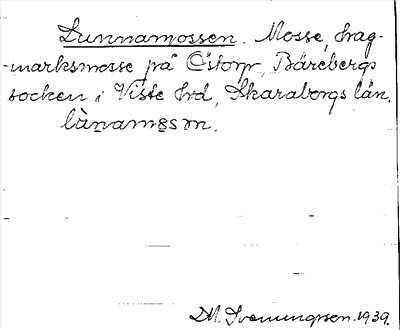 Lunnamossen. Mosse, hag-
-marksmosse på Östorp, Bärebergs
socken i Viste hrd, Skaraborgs län.
lùnamo̱s m.
DM. Svenungsson. 1939.